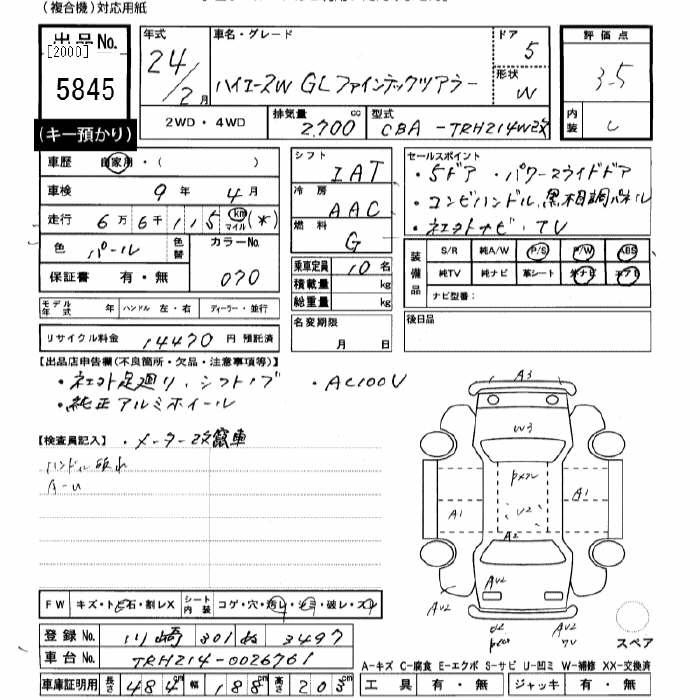 (複合機)対応用紙
出品No.
[2000]
5845
(キー預かり)
年式
24/2月
車名・グレード
ハイエースW GLファインテックツアラー
ドア
5
形状
W
評価点
3.5
内装
C
2WD・4WD
排気量
2,700 cc
型式
CBA-TRH214W改
車歴 自家用・( )
車検 9年 4月
走行 6万6千115 km マイル (*)
色 パール 色替 カラーNo. 070
保証書 有・無
モデル年式 年 ハンドル 左・右 ディーラー・並行
リサイクル料金 14470 円 預託済
シフト IAT
冷房 AAC
燃料 G
乗車定員 10名
積載量 kg
総重量 kg
名変期限
月 日
セールスポイント
・5ドア ・パワースライドドア
・コンビハンドル,黒木目調パネル
・社外ナビ・TV
装備品
S/R 純A/W P/S P/W ABS
純TV 純ナビ 革シート 社ナビ エアB
ナビ型番:
後日品
【出品店申告欄(不良箇所・欠品・注意事項等)】
・社外足廻り、シフトノブ ・AC100V
・純正アルミホイール
【検査員記入】 ・メーター改竄車
A-U
A3
W3
A1
A1
U2
A2
AU2
AU2
AU2
AU2
FW キズ・トビ石・割レX シート内装 コゲ・穴・汚レ・シミ・破レ・スレ
登録No. 川崎 301 3497
車台No. TRH214-0026761
車庫証明用 長さ 484cm 幅 188cm 高さ 203cm
スペア
A―キズ C―腐食 E―エクボ S―サビ U―凹ミ W―補修 XX―交換済
工具 有・無 ジャッキ 有・無